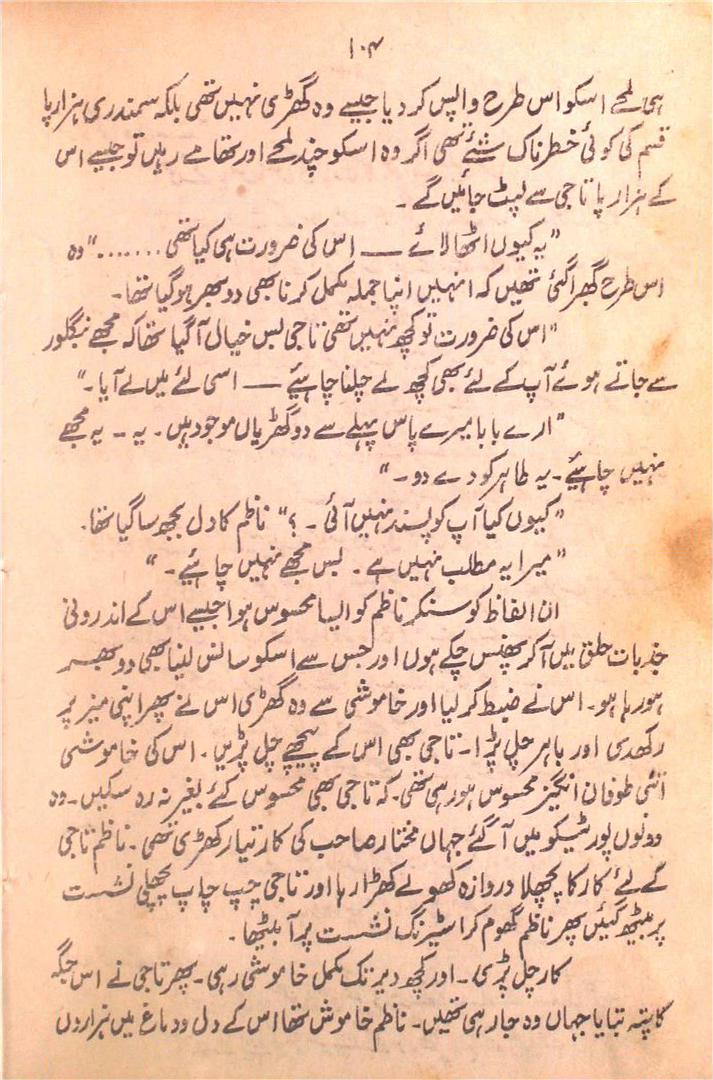 ۱۰۴
ہی لمحے اسکو اس طرح واپس کر دیا جیسے وہ گھڑی نہیں تھی بلکہ سمندری ہزار پا
قسم کی کوئی خطرناک شئے تھی اگر وہ اسکو چند لمحے اور تھامے رہیں تو جیسے اس
کے ہزار پا تاجی سے لپٹ جائیں گے ۔
"یہ کیوں اٹھا لائے —— اس کی ضرورت ہی کیا تھی ........" وہ
اس طرح گھبرا گئی تھیں کہ انہیں اپنا جملہ مکمل کرنا بھی دوبھر ہو گیا تھا۔
"اس کی ضرورت تو کچھ نہیں تھی تاجی بس خیال آ گیا تھا کہ مجھے بنگلور
سے جاتے ہوئے آپ کے لئے بھی کچھ لے چلنا چاہیئے —— اسی لئے میں لے آیا ۔"
"ارے بابا میرے پاس پہلے سے دو گھڑیاں موجود ہیں ۔ یہ ۔۔ یہ مجھے
نہیں چاہیئے ۔ یہ طاہر کو دے دو ۔۔"
"کیوں کیا آپ کو پسند نہیں آئی ۔ ؟" ناظم کا دل بجھ سا گیا تھا۔
"میرا یہ مطلب نہیں ہے ۔ بس مجھے نہیں چاہیئے ۔"
ان الفاظ کو سنکر ناظم کو ایسا محسوس ہوا جیسے اس کے اندرونی
جذبات حلق میں آ کر پھنس چکے ہوں اور جس سے اسکو سانس لینا بھی دوبھر
ہو رہا ہو۔ اس نے ضبط کر لیا اور خاموشی سے وہ گھڑی اس نے پھر اپنی میز پر
رکھدی اور باہر چل پڑا ۔ تاجی بھی اس کے پیچھے چل پڑیں ۔ اس کی خاموشی
اتنی طوفان انگیز محسوس ہو رہی تھی۔ کہ تاجی بھی محسوس کئے بغیر نہ رہ سکیں ۔ وہ
دونوں پورٹیکو میں آ گئے جہاں مختار صاحب کی کار تیار کھڑی تھی ۔ ناظم تاجی
کے لئے کار کا پچھلا دروازہ کھولے کھڑا رہا اور تاجی چپ چاپ پچھلی نشست
پر بیٹھ گئیں پھر ناظم گھوم کر اسٹیرنگ نشست پر آ بیٹھا ۔
کار چل پڑی ۔ اور کچھ دیر تک مکمل خاموشی رہی ۔ پھر تاجی نے اس جگہ
کا پتہ بتایا جہاں وہ جا رہی تھیں ۔ ناظم خاموش تھا اس کے دل و دماغ میں ہزاروں